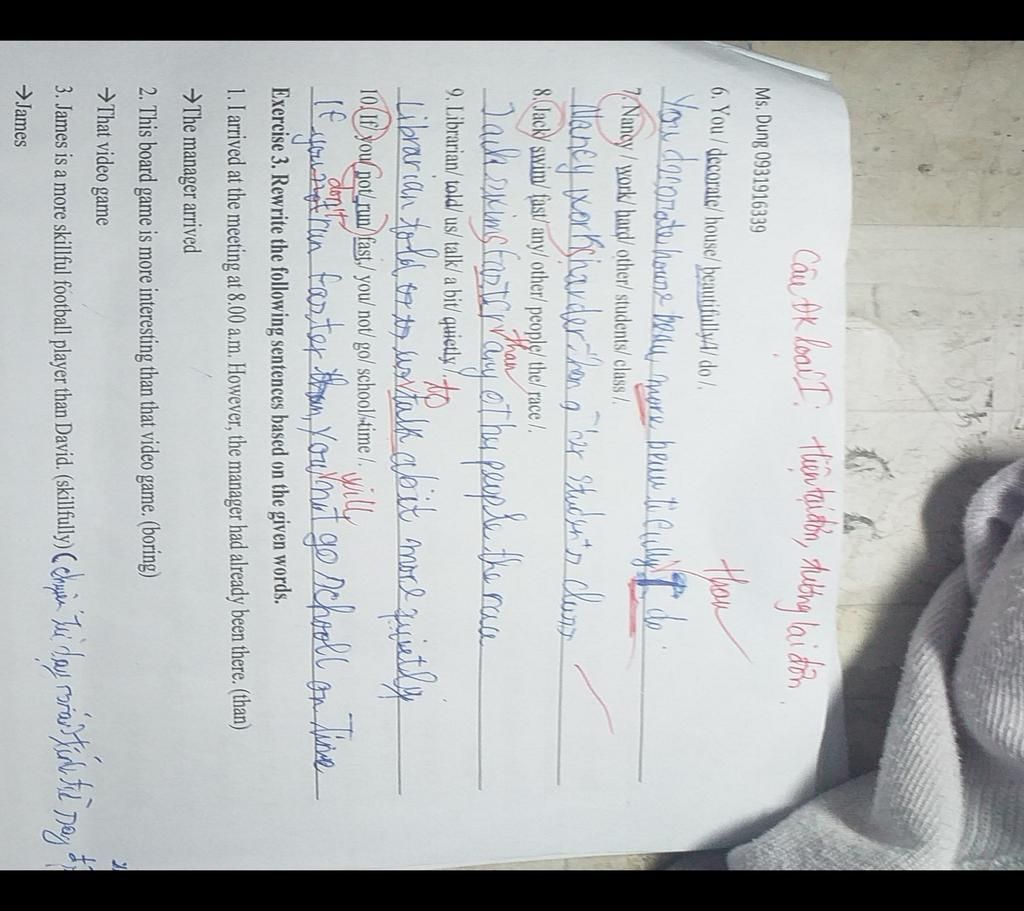 Câu ĐK loại I: thiện tại đơn, tương lai đơn
Ms. Dung 0931916339
than
6. You / decorate/ house/ beautifully/I/ do /.
You decorate house more beautifully I do
7. Nancy / work/ hard/ other/ students/ class /.
Nancy works harder students class
8. Jack/ swim/ fast/ any/ other/ people/ the/ race /.
than
Jack swims faster any other people the race
9. Librarian/ told/ us/ talk/ a bit/ quietly /.
to
Librarian told us talk a bit more quietly
10. If/ you/ not/ run/ fast,/ you/ not/ go/ school/ time /.
don't will
If you not run faster, you not go school on time
Exercise 3. Rewrite the following sentences based on the given words.
1. I arrived at the meeting at 8.00 a.m. However, the manager had already been there. (than)
→ The manager arrived
2. This board game is more interesting than that video game. (boring)
→ That video game
3. James is a more skillful football player than David. (skillfully)
→ James